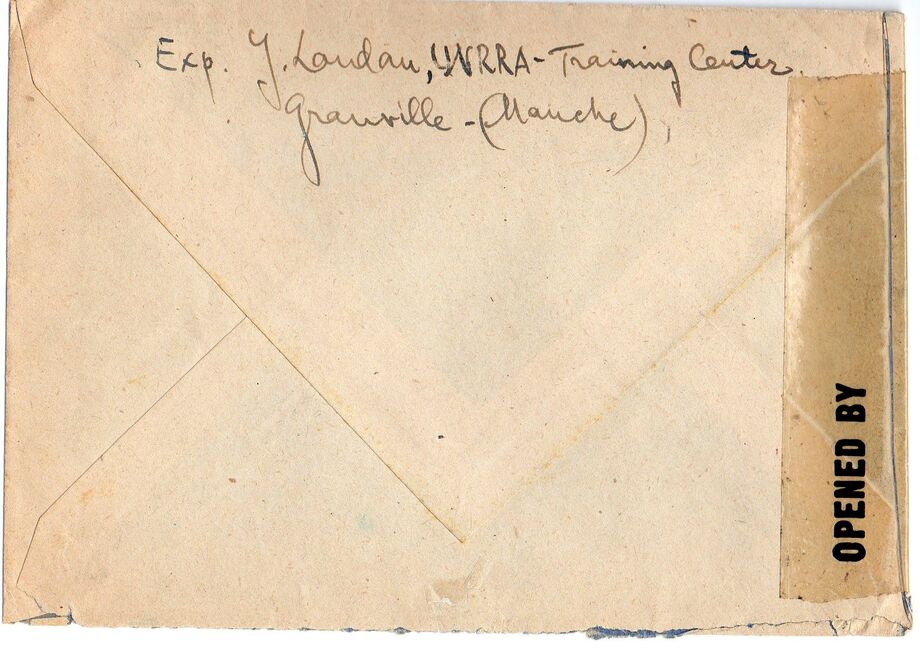 Exp. J. Landau, UNRRA-Training Center.
Granville - (Manche),
OPENED BY